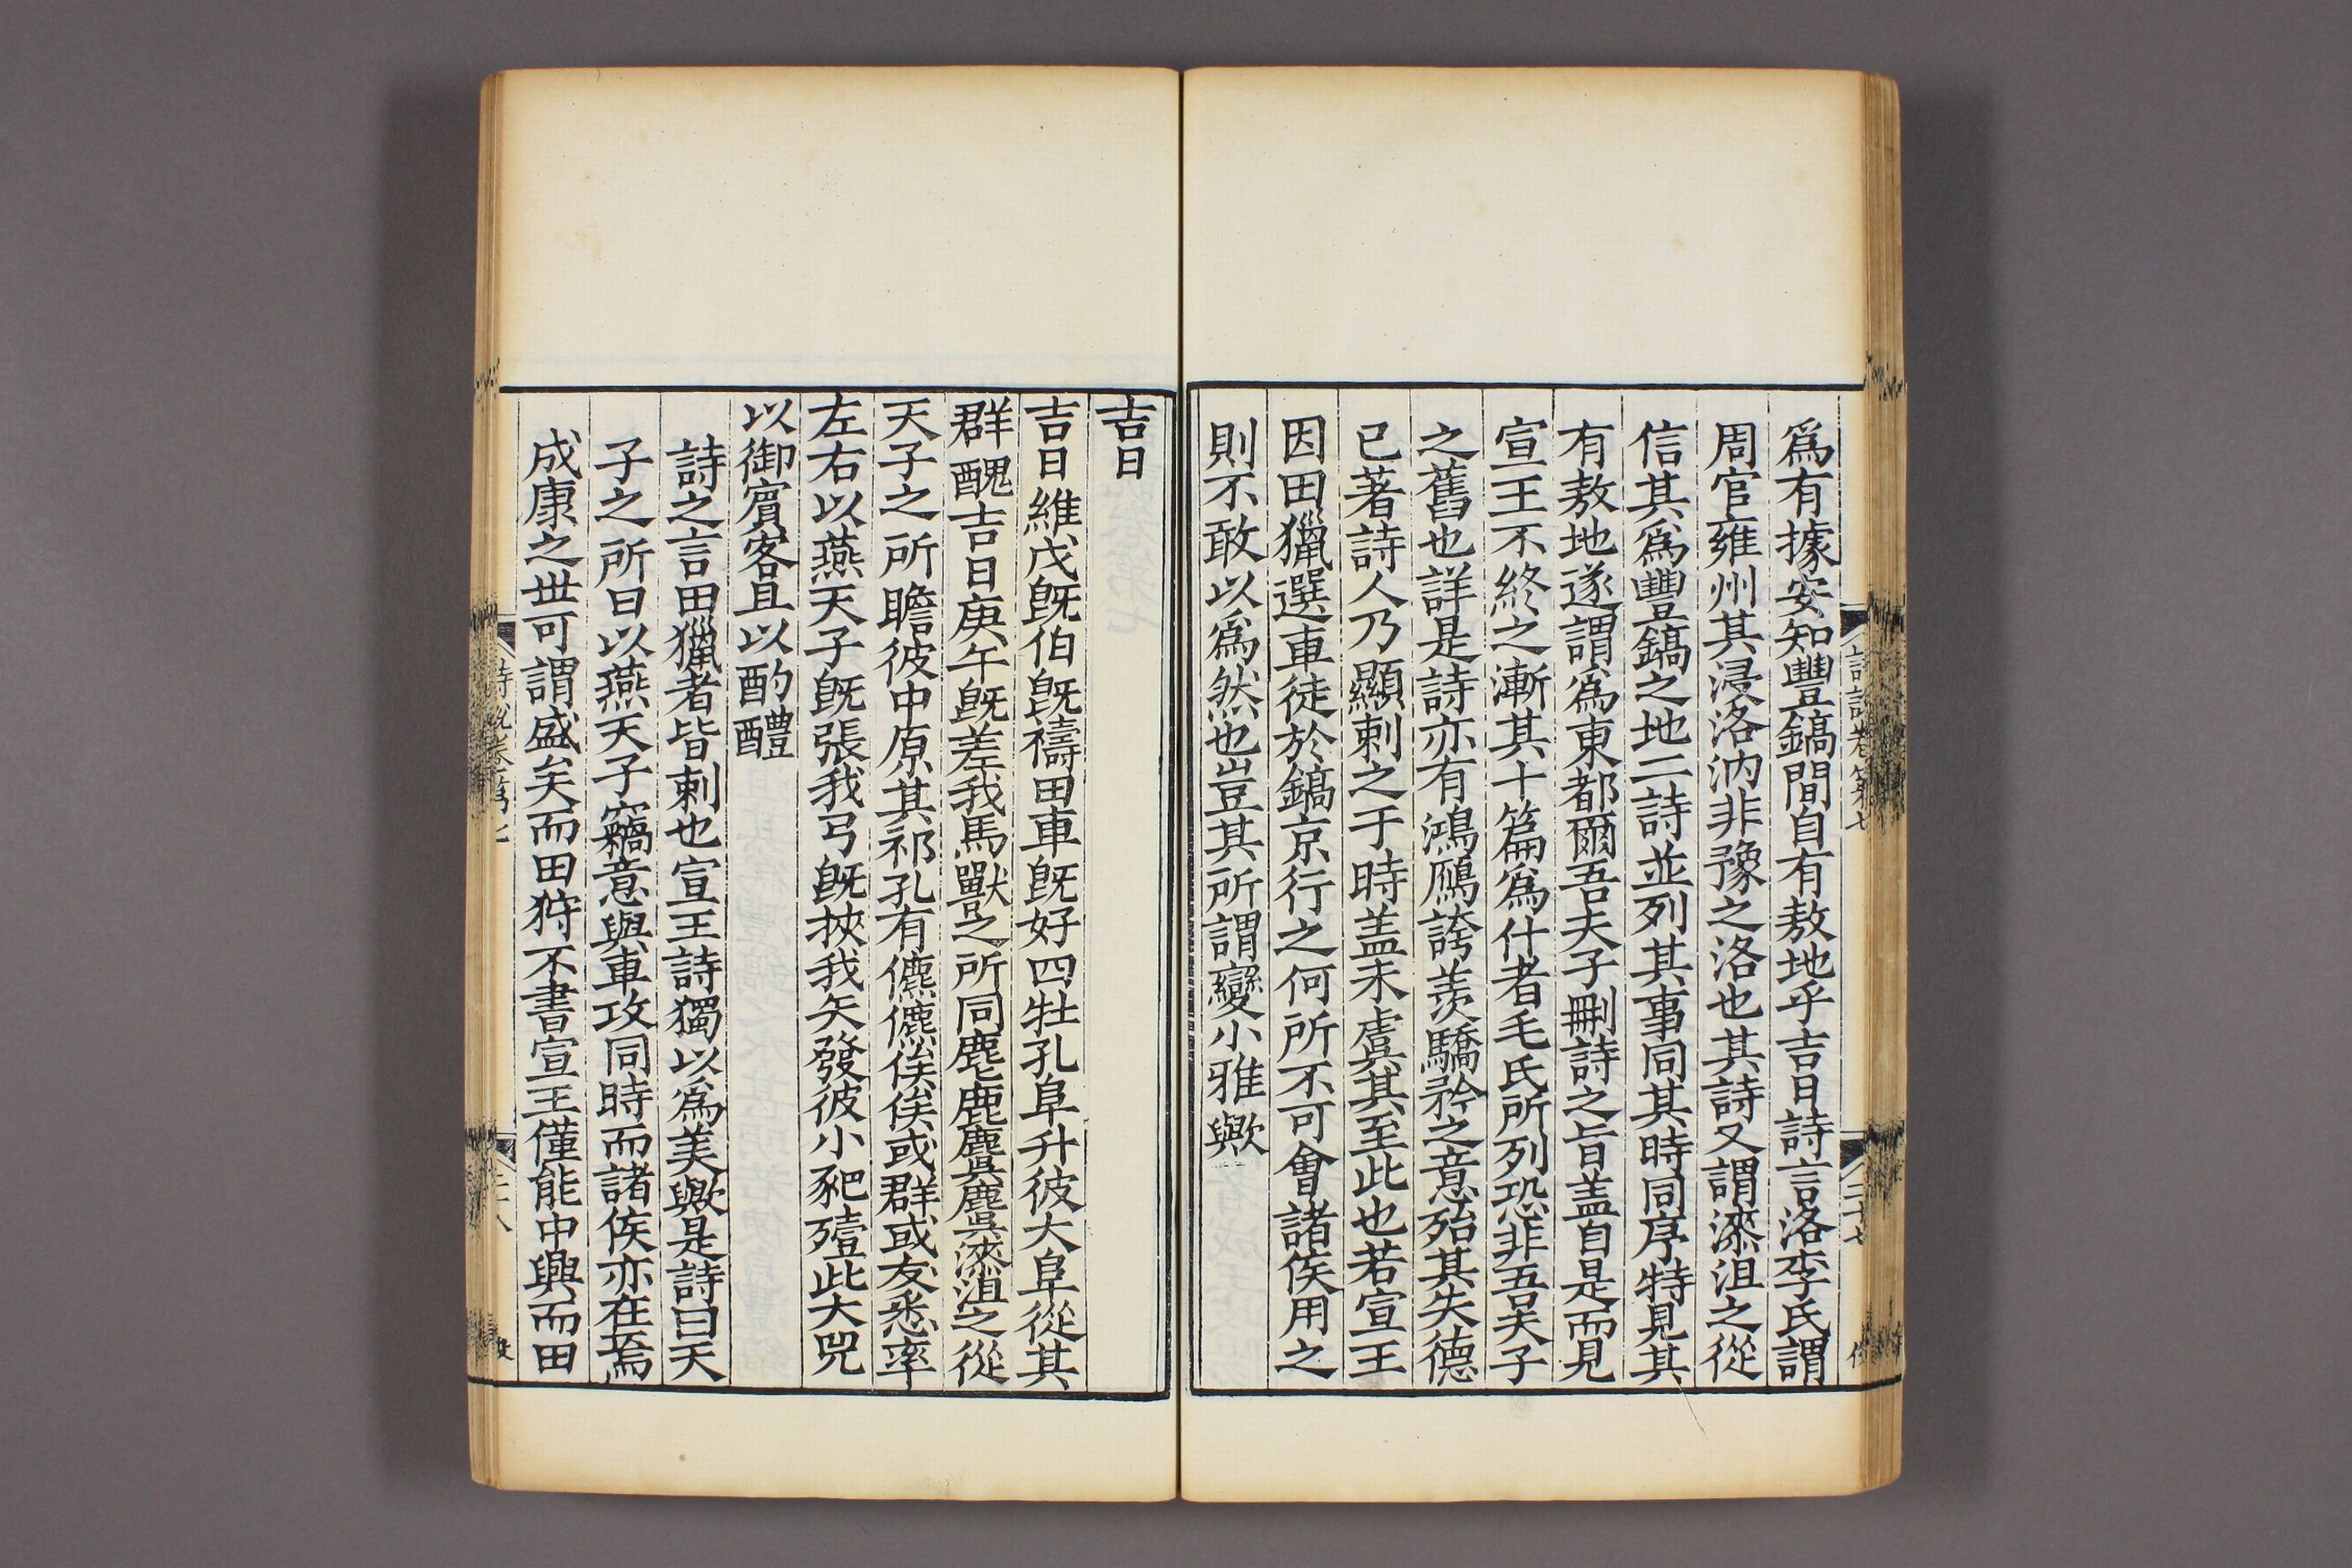 爲有據安知豐鎬間自有敖地乎吉日詩言洛李氏謂
周官雍州其浸洛汭非豫之洛也其詩又謂漆沮之從
信其爲豐鎬之地二詩並列其事同其時同序特見其
有敖地遂謂爲東都爾吾夫子刪詩之旨盖自是而見
宣王不終之漸其十篇爲什者毛氏所列恐非吾夫子
之舊也詳是詩亦有鴻鴈誇羨驕矜之意殆其失德
已著詩人乃顯刺之于時盖未虞其至此也若宣王
因田獵選車徒於鎬京行之何所不可會諸侯用之
則不敢以爲然也豈其所謂變小雅歟
吉日
吉日維戊旣伯旣禱田車旣好四牡孔阜升彼大阜從其
群醜吉日庚午旣差我馬獸之所同麀鹿麌麌漆沮之從
天子之所瞻彼中原其祁孔有儦儦俟俟或群或友悉率
左右以燕天子旣張我弓旣挾我矢發彼小豝殪此大兕
以御賓客且以酌醴
詩之言田獵者皆刺也宣王詩獨以爲美歟是詩曰天
子之所曰以燕天子竊意與車攻同時而諸侯亦在焉
成康之世可謂盛矣而田狩不書宣王僅能中興而田
詩說卷第七
二十八